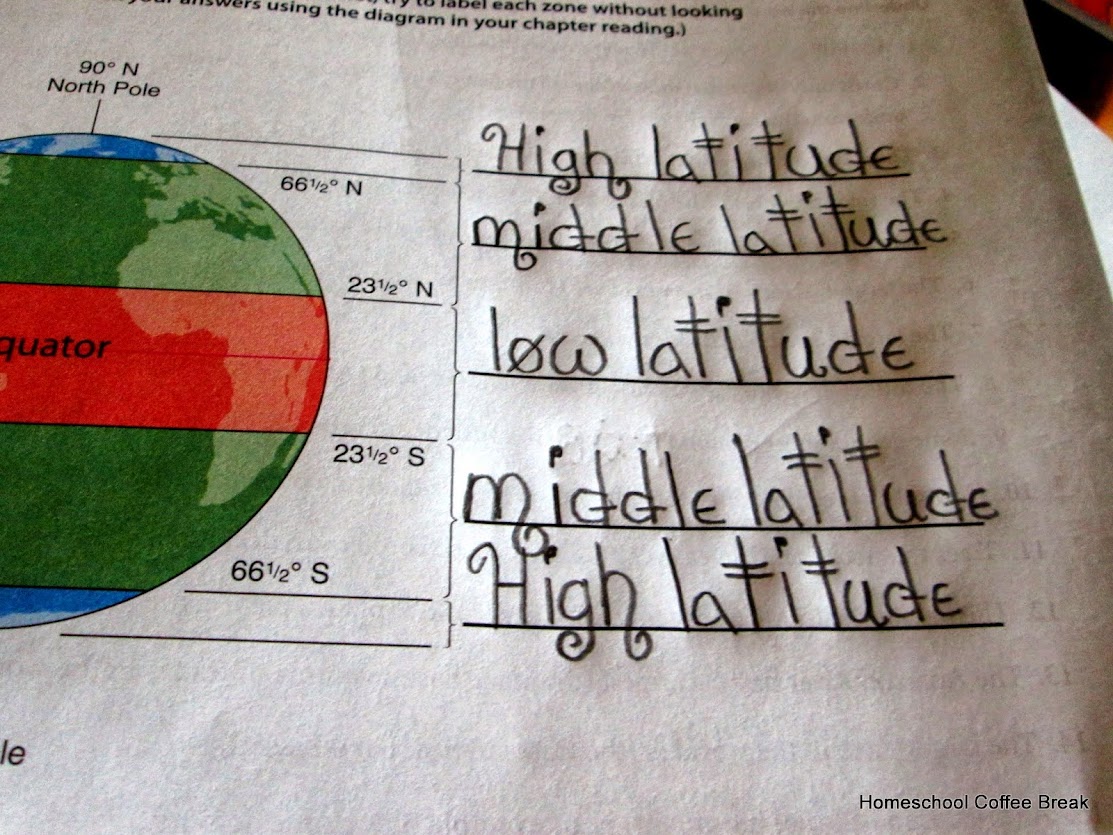 your answers using the diagram in your chapter reading.)
to label each zone without looking
90° N
North Pole
High latitude
66½° N
middle latitude
23½° N
low latitude
quator
23½° S
middle latitude
66½° S
High latitude
le
Homeschool Coffee Break